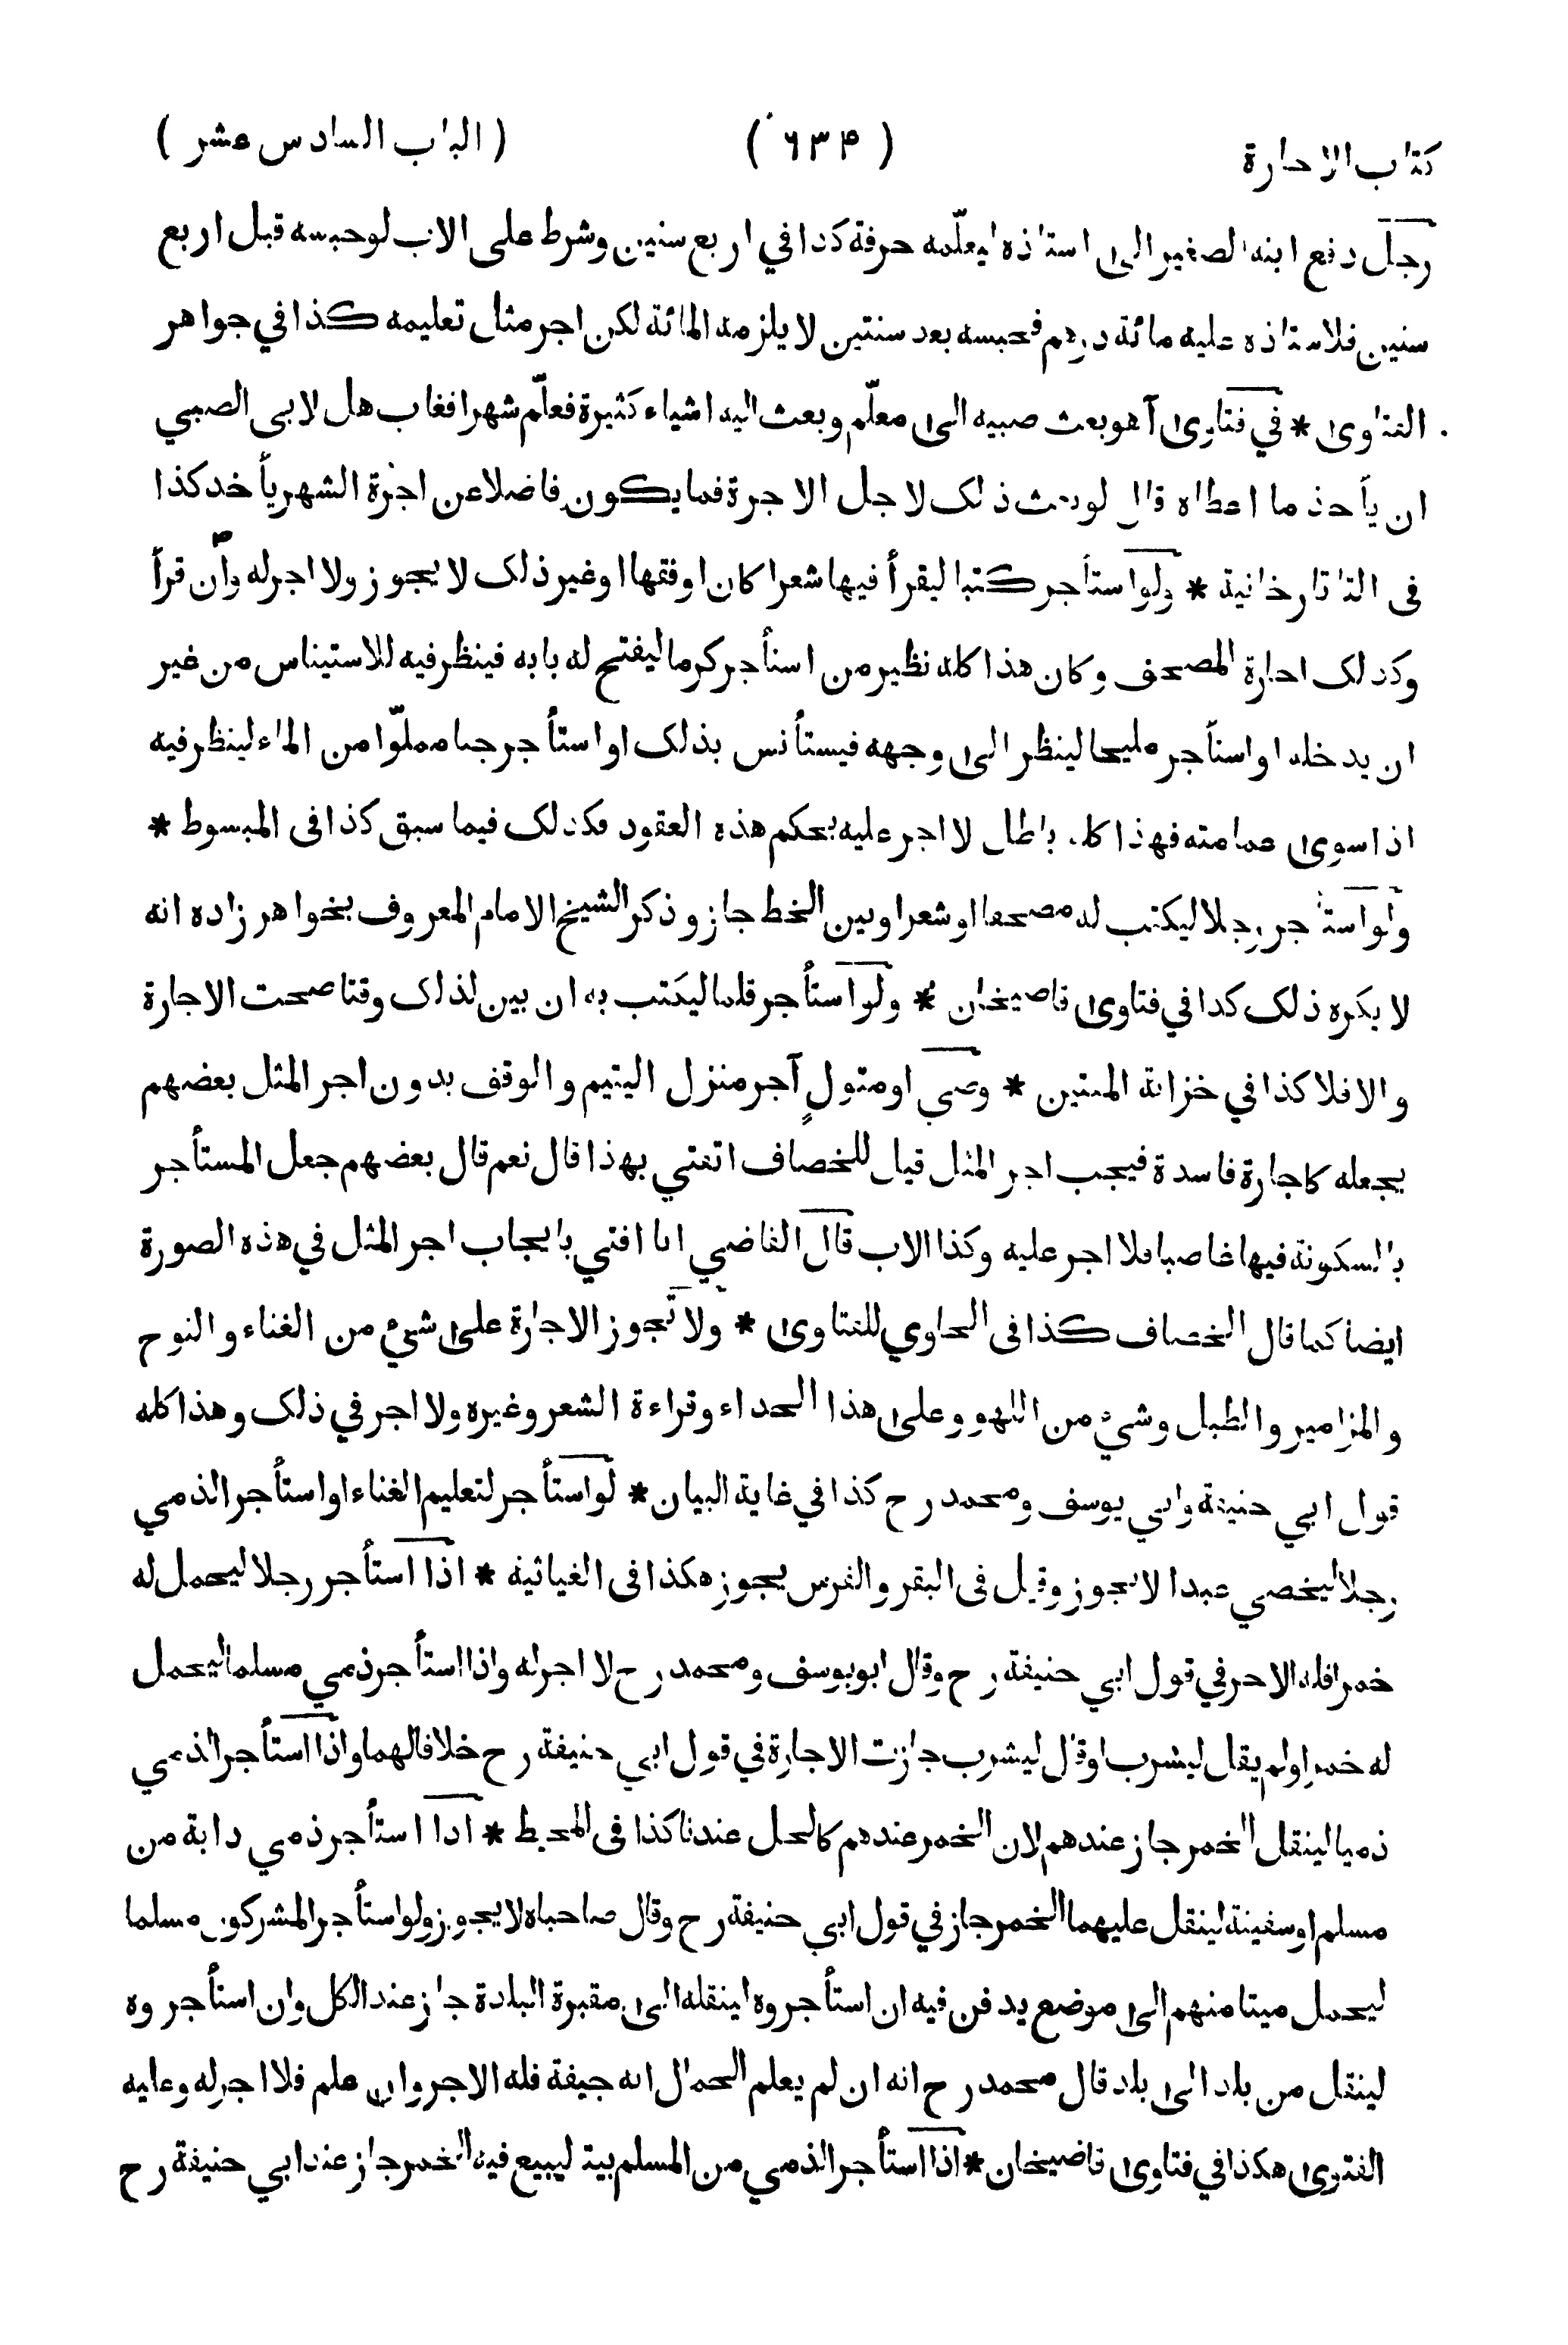 كتاب الاجارة ( ۶۳۴ ) ( الباب السادس عشر )
رجل دفع ابنه الصغير الى استاذه ليعلّمه حرفة كذا في اربع سنين وشرط على الاب لو حبسه قبل اربع
سنين فلاستاذه عليه مائة درهم فحبسه بعد سنتين لا يلزمه المائة لكن اجر مثل تعليمه كذا في جواهر
الفتاوى * في فتاوى آهو بعث صبيه الى معلّم وبعث اليه اشياء كثيرة فعلّم شهرا فغاب هل لابى الصبي
ان يأخذ ما اعطاه قال لو بعث ذلك لاجل الاجرة فما يكون فاضلا عن اجرة الشهر يأخذ كذا
فى التاتارخانية * ولو استأجر كتبا ليقرأ فيها شعرا كان او فقها او غير ذلك لا يجوز ولا اجر له وان قرأ
وكذلك اجارة المصحف وكان هذا كله نظير من استأجر كرما ليفتح له بابه فينظر فيه للاستيناس من غير
ان يدخله او استأجر مليحا لينظر الى وجهه فيستأنس بذلك او استأجر جبا مملوّا من الماء لينظر فيه
اذا سوى عمامته فهذا كله باطل لا اجر عليه بحكم هذه العقود فكذلك فيما سبق كذا فى المبسوط *
ولو استأجر رجلا ليكتب له مصحفا او شعرا وبين الخط جاز وذكر الشيخ الامام المعروف بخواهر زاده انه
لا يكره ذلك كذا في فتاوى قاضيخان * ولو استأجر قلما ليكتب به ان بين لذلك وقتا صحت الاجارة
والا فلا كذا في خزانة المفتين * وصي او متولٍ آجر منزل اليتيم والوقف بدون اجر المثل بعضهم
يجعله كاجارة فاسدة فيجب اجر المثل قيل للخصاف اتفتي بهذا قال نعم قال بعضهم جعل المستأجر
بالسكونة فيها غاصبا فلا اجر عليه وكذا الاب قال القاضي انا افتي بايجاب اجر المثل في هذه الصورة
ايضا كما قال الخصاف كذا فى الحاوي للفتاوى * ولا تجوز الاجارة على شيء من الغناء والنوح
والمزامير والطبل وشيء من اللهو وعلى هذا الحداء وقراءة الشعر وغيره ولا اجر في ذلك وهذا كله
قول ابي حنيفة وابي يوسف ومحمد رح كذا في غاية البيان * لو استأجر لتعليم الغناء او استأجر الذمي
رجلا ليخصي عبدا لا يجوز وقيل فى البقر والفرس يجوز هكذا فى الغياثية * اذا استأجر رجلا ليحمل له
خمرا فله الاجر في قول ابي حنيفة رح وقال ابو يوسف ومحمد رح لا اجر له واذا استأجر ذمي مسلما ليحمل
له خمرا ولم يقل ليشرب او قال ليشرب جازت الاجارة في قول ابي حنيفة رح خلافا لهما واذا استأجر الذمي
ذميا لينقل الخمر جاز عندهم لان الخمر عندهم كالخل عندنا كذا فى المحيط * اذا استأجر ذمي دابة من
مسلم او سفينة لينقل عليهما الخمر جاز في قول ابي حنيفة رح وقال صاحباه لا يجوز ولو استأجر المشركون مسلما
ليحمل ميتا منهم الى موضع يدفن فيه ان استأجروه لينقله الى مقبرة البلدة جاز عند الكل وان استأجروه
لينقل من بلد الى بلد قال محمد رح انه ان لم يعلم الحمال انه جيفة فله الاجر وان علم فلا اجر له وعليه
الفتوى هكذا في فتاوى قاضيخان * اذا استأجر الذمي من المسلم بيتا ليبيع فيه الخمر جاز عند ابي حنيفة رح